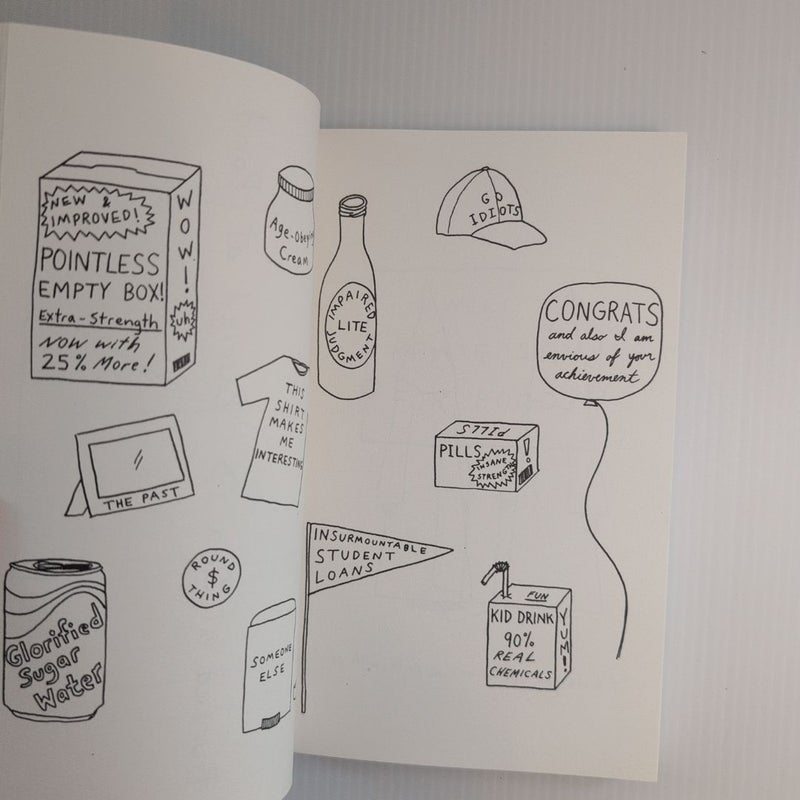 NEW &
IMPROVED!
POINTLESS
EMPTY BOX!
Extra-Strength
NOW with
25% More!
WOW!
uh
Cream
THIS
SHIRT
MAKES
ME
INTERESTING
THE PAST
Glorified
Sugar
Water
ROUND
$
THING
SOMEONE
ELSE
IMPAIRED
LITE
JUDGMENT
GO
IDIOTS
CONGRATS
and also I am
envious of your
achievement
PILLS
PILLS
INSANE
STRENGTH
!
INSURMOUNTABLE
STUDENT
LOANS
FUN
KID DRINK
90%
REAL
CHEMICALS
YUM!